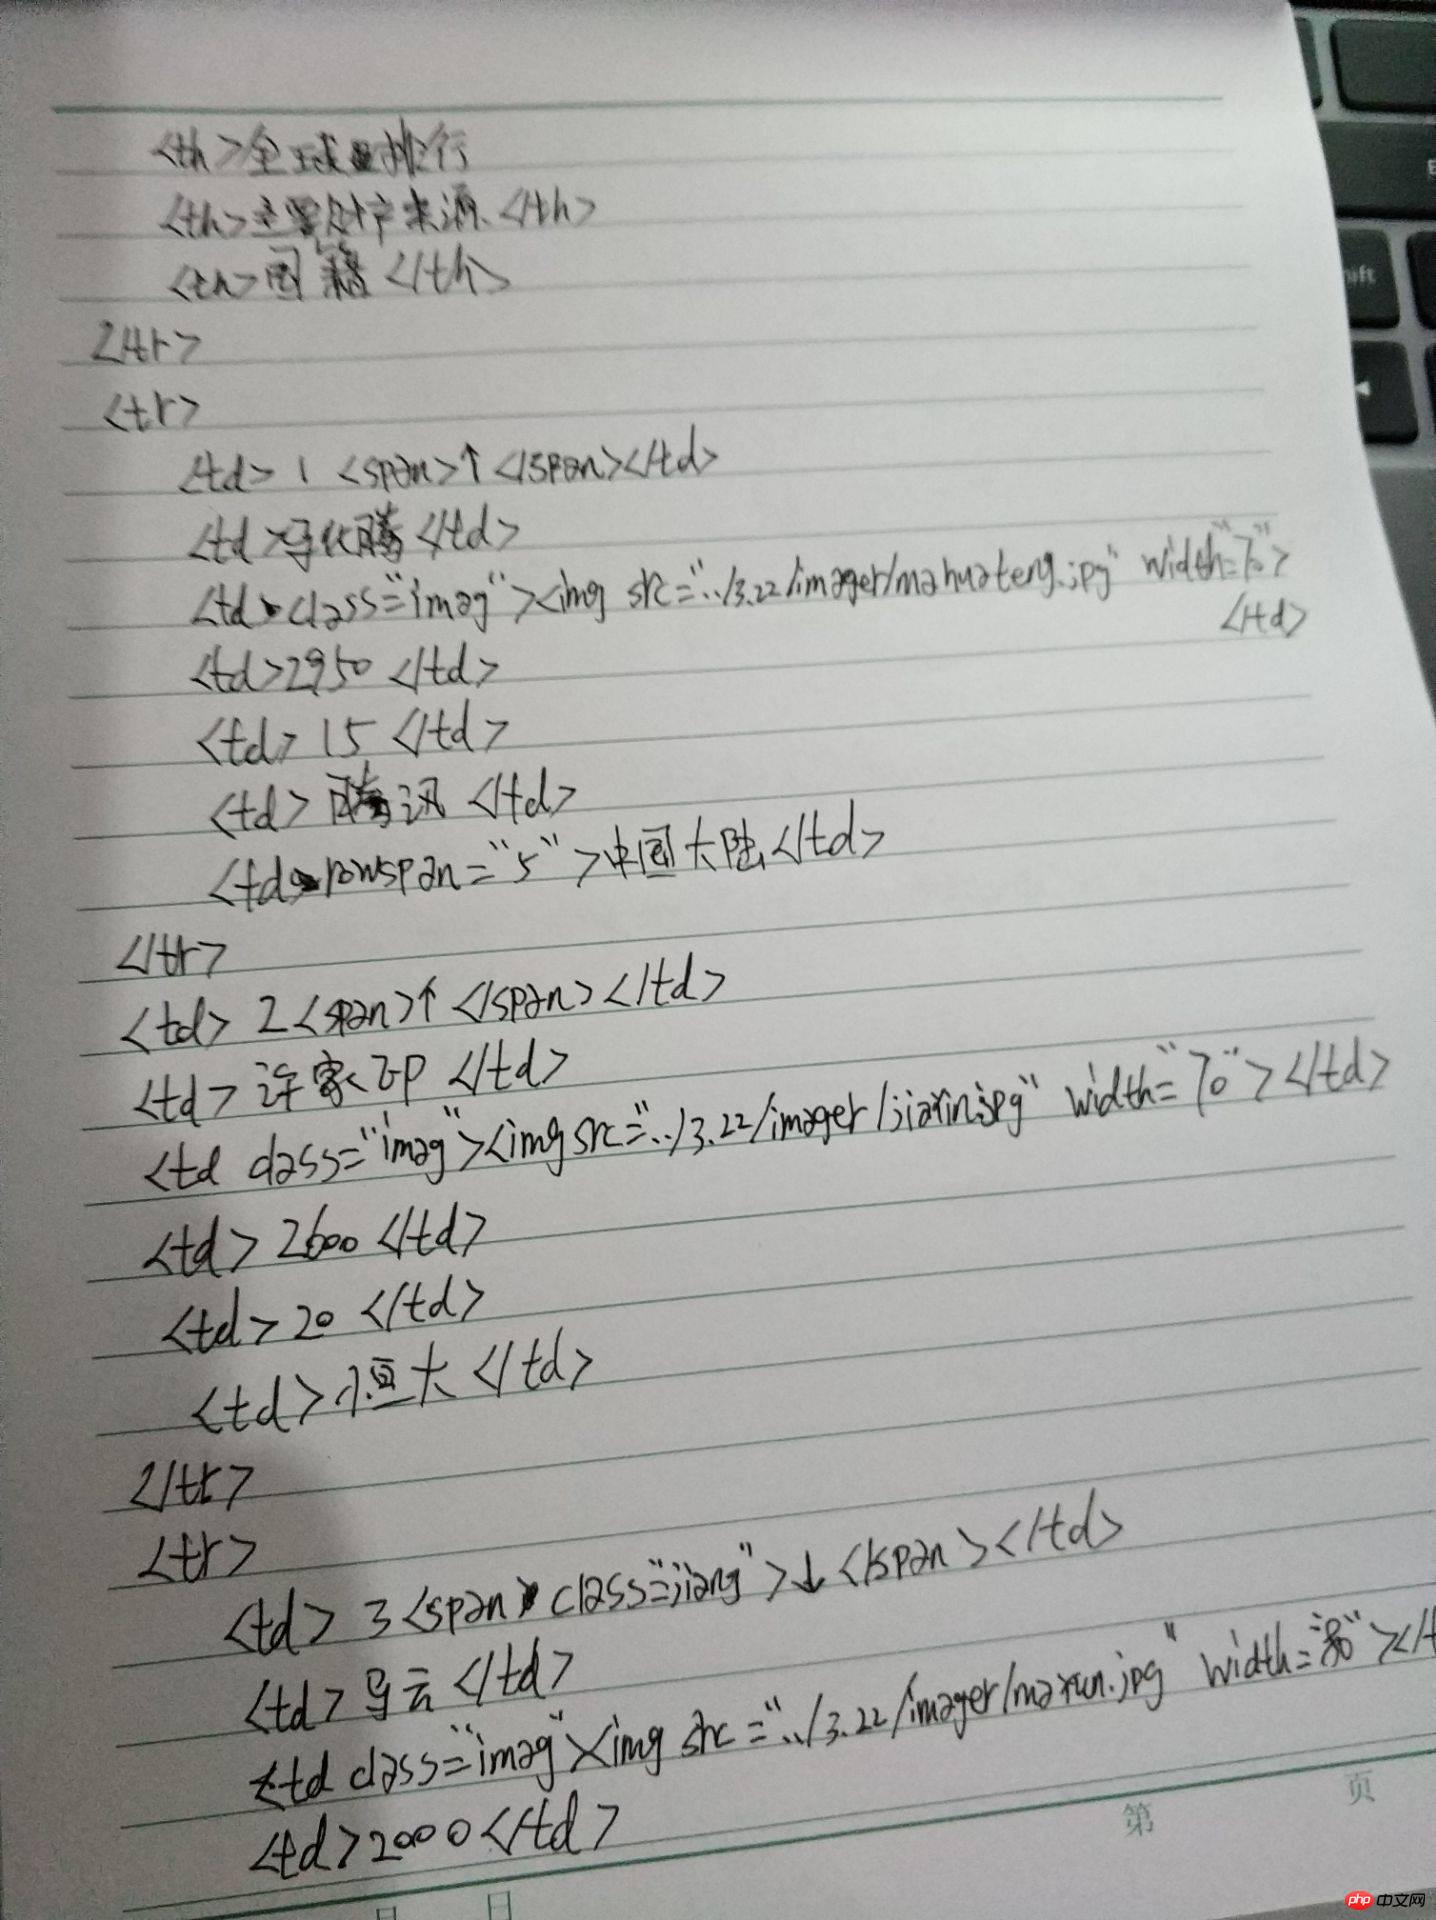 <th>全球排行
<th>主要财产来源</th>
<th>国籍</th>
</tr>
<tr>
<td>1 <span>↑</span></td>
<td>马化腾</td>
<td class="imag"><img src="../3.22/imager/mahuateng.jpg" width="70">
</td>
<td>2950</td>
<td>15</td>
<td>腾讯</td>
<td rowspan="5">中国大陆</td>
</tr>
<td>2<span>↑</span></td>
<td>许家印</td>
<td class="imag"><img src="../3.22/imager/jiaxin.jpg" width="70"></td>
<td>2600</td>
<td>20</td>
<td>恒大</td>
</tr>
<tr>
<td>3<span class="jiang">↓</span></td>
<td>马云</td>
<td class="imag"><img src="../3.22/imager/mayun.jpg" width="80"></t
<td>2000</td>
第 页
月 日
php 中文网